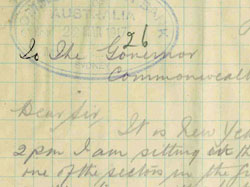 AUSTRALIA
26
To The Governor
Commonwealth
Dear Sir
It is New Yea
2 pm I am sitting at the
one of the sectors in the f